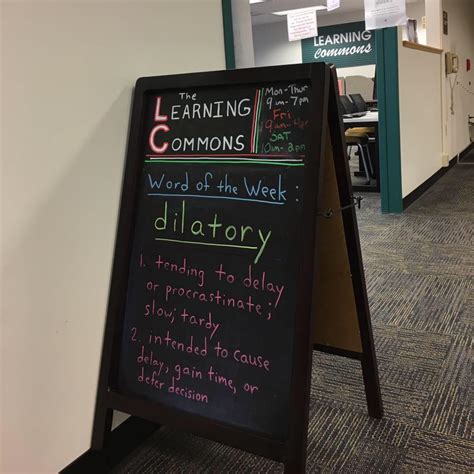 The
LEARNING
COMMONS
Mon-Thur
9am-7pm
Fri
SAT
LEARNING
Commons
Word of the Week:
dilatory
1. tending to delay
or procrastinate;
slow; tardy
2. intended to cause
delay, gain time, or
defer decision